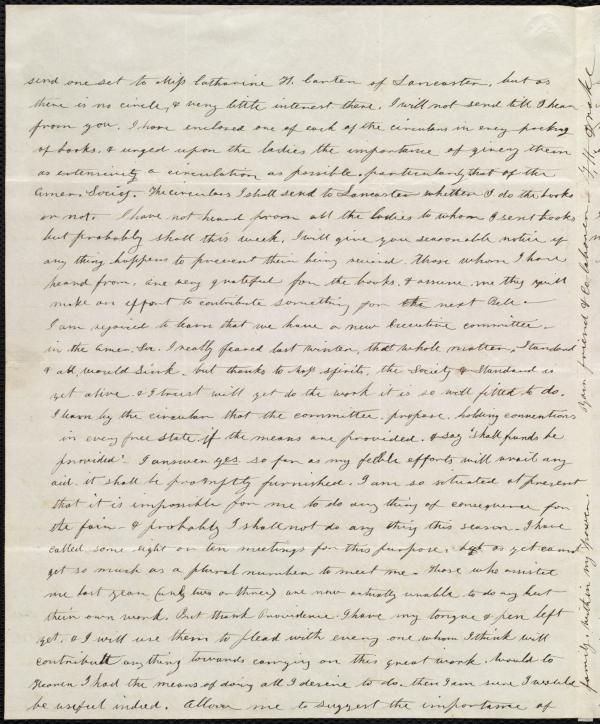 send one set to Miss Catharine H. Canten of Lancaster, but as
there is no circle, & very little interest there, I will not send till I hear
from you. I have enclosed one of each of the circulars in every package
of books, & urged upon the ladies the importance of giving them
as extensively a circulation as possible, particularly that of the
Amer. Society. The circulars I shall send to Lancaster whether I do the books
or not. I have not heard from all the ladies to whom I sent books
but probably shall this week. I will give you seasonable notice if
any thing happens to prevent their being received. Those whom I have
heard from, are very grateful for the books, & assure me they will
make an effort to contribute something for the next Bell -
I am rejoiced to learn that we have a new Executive committee -
in the Amer. Soc. I really feared last winter, that whole matter, Standard
& all, would sink. but thanks to spirits, the Society & Standard is
yet alive & I trust will yet do the work it is so well fitted to do.
I learn by the circular that the committee, propose, holding conventions
in every free state if the means are provided. & say "shall funds be
provided". I answer yes so far as my feeble efforts will avail any
aid it shall be promptly furnished. I am so situated at present
that it is impossible for me to do any thing of consequence for
the fair - & probably I shall not do any thing this season. I have
called some eight or ten meetings for this purpose, but as yet cannot
get so much as a plural number to meet me - Those who assisted
me last year (only two or three) are now actually unable to do any but
their own work. But thank Providence I have my tongue & pen left
yet, & I will use them to plead with every one whom I think will
contribute any thing towards carrying on this great work. Would to
Heaven I had the means of doing all I desire to do. then I am sure I would
be useful indeed. Allow me to suggest the importance of
family, within my power. Your friend & Co laborer - J. H. Drake